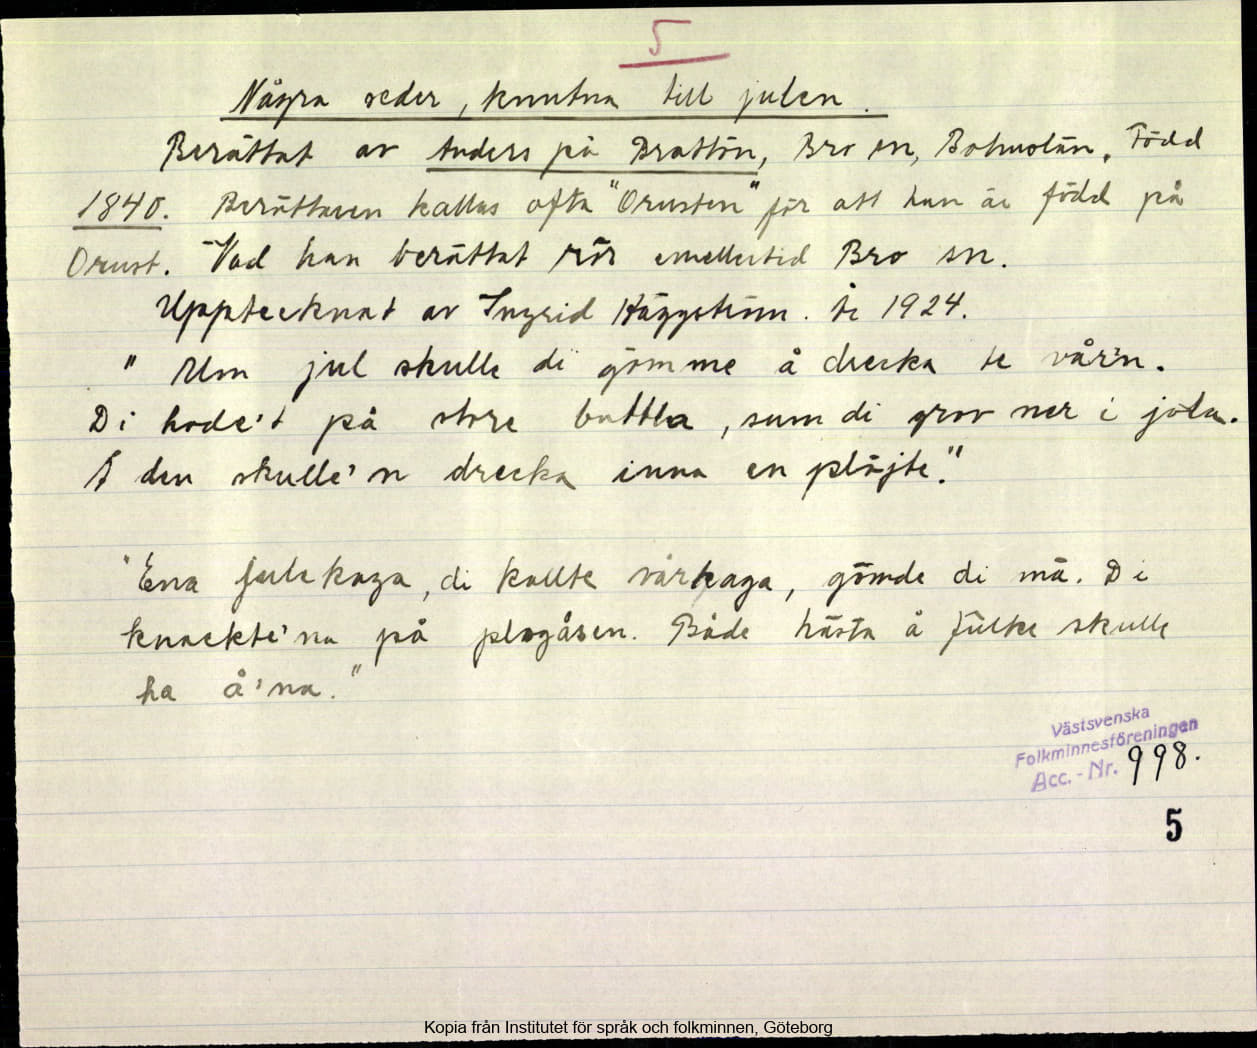 5
Några seder, knutna till julen.
Berättat av Anders på Brattön, Bro sn, Bohuslän. Född
1840. Berättaren kallas ofta "Orusten" för att han är född på
Orust. Vad han berättat rör emellertid Bro sn.
Upptecknat av Ingrid Häggström. år 1924.
" Um jul skulle di gömme å drecka te vår'n.
Di hade't på store buttla, sum di grov ner i jola.
Å den skulle'n drecka inna en plöjte."
"Ena julekaga, di kallte vårkaga, gömde di mä. Di
knackte'na på plogåsen. Både hästa å fulke skulle
ha å'na."
Västsvenska
Folkminnesföreningen
Acc.-Nr. 998.
5
Kopia från Institutet för språk och folkminnen, Göteborg